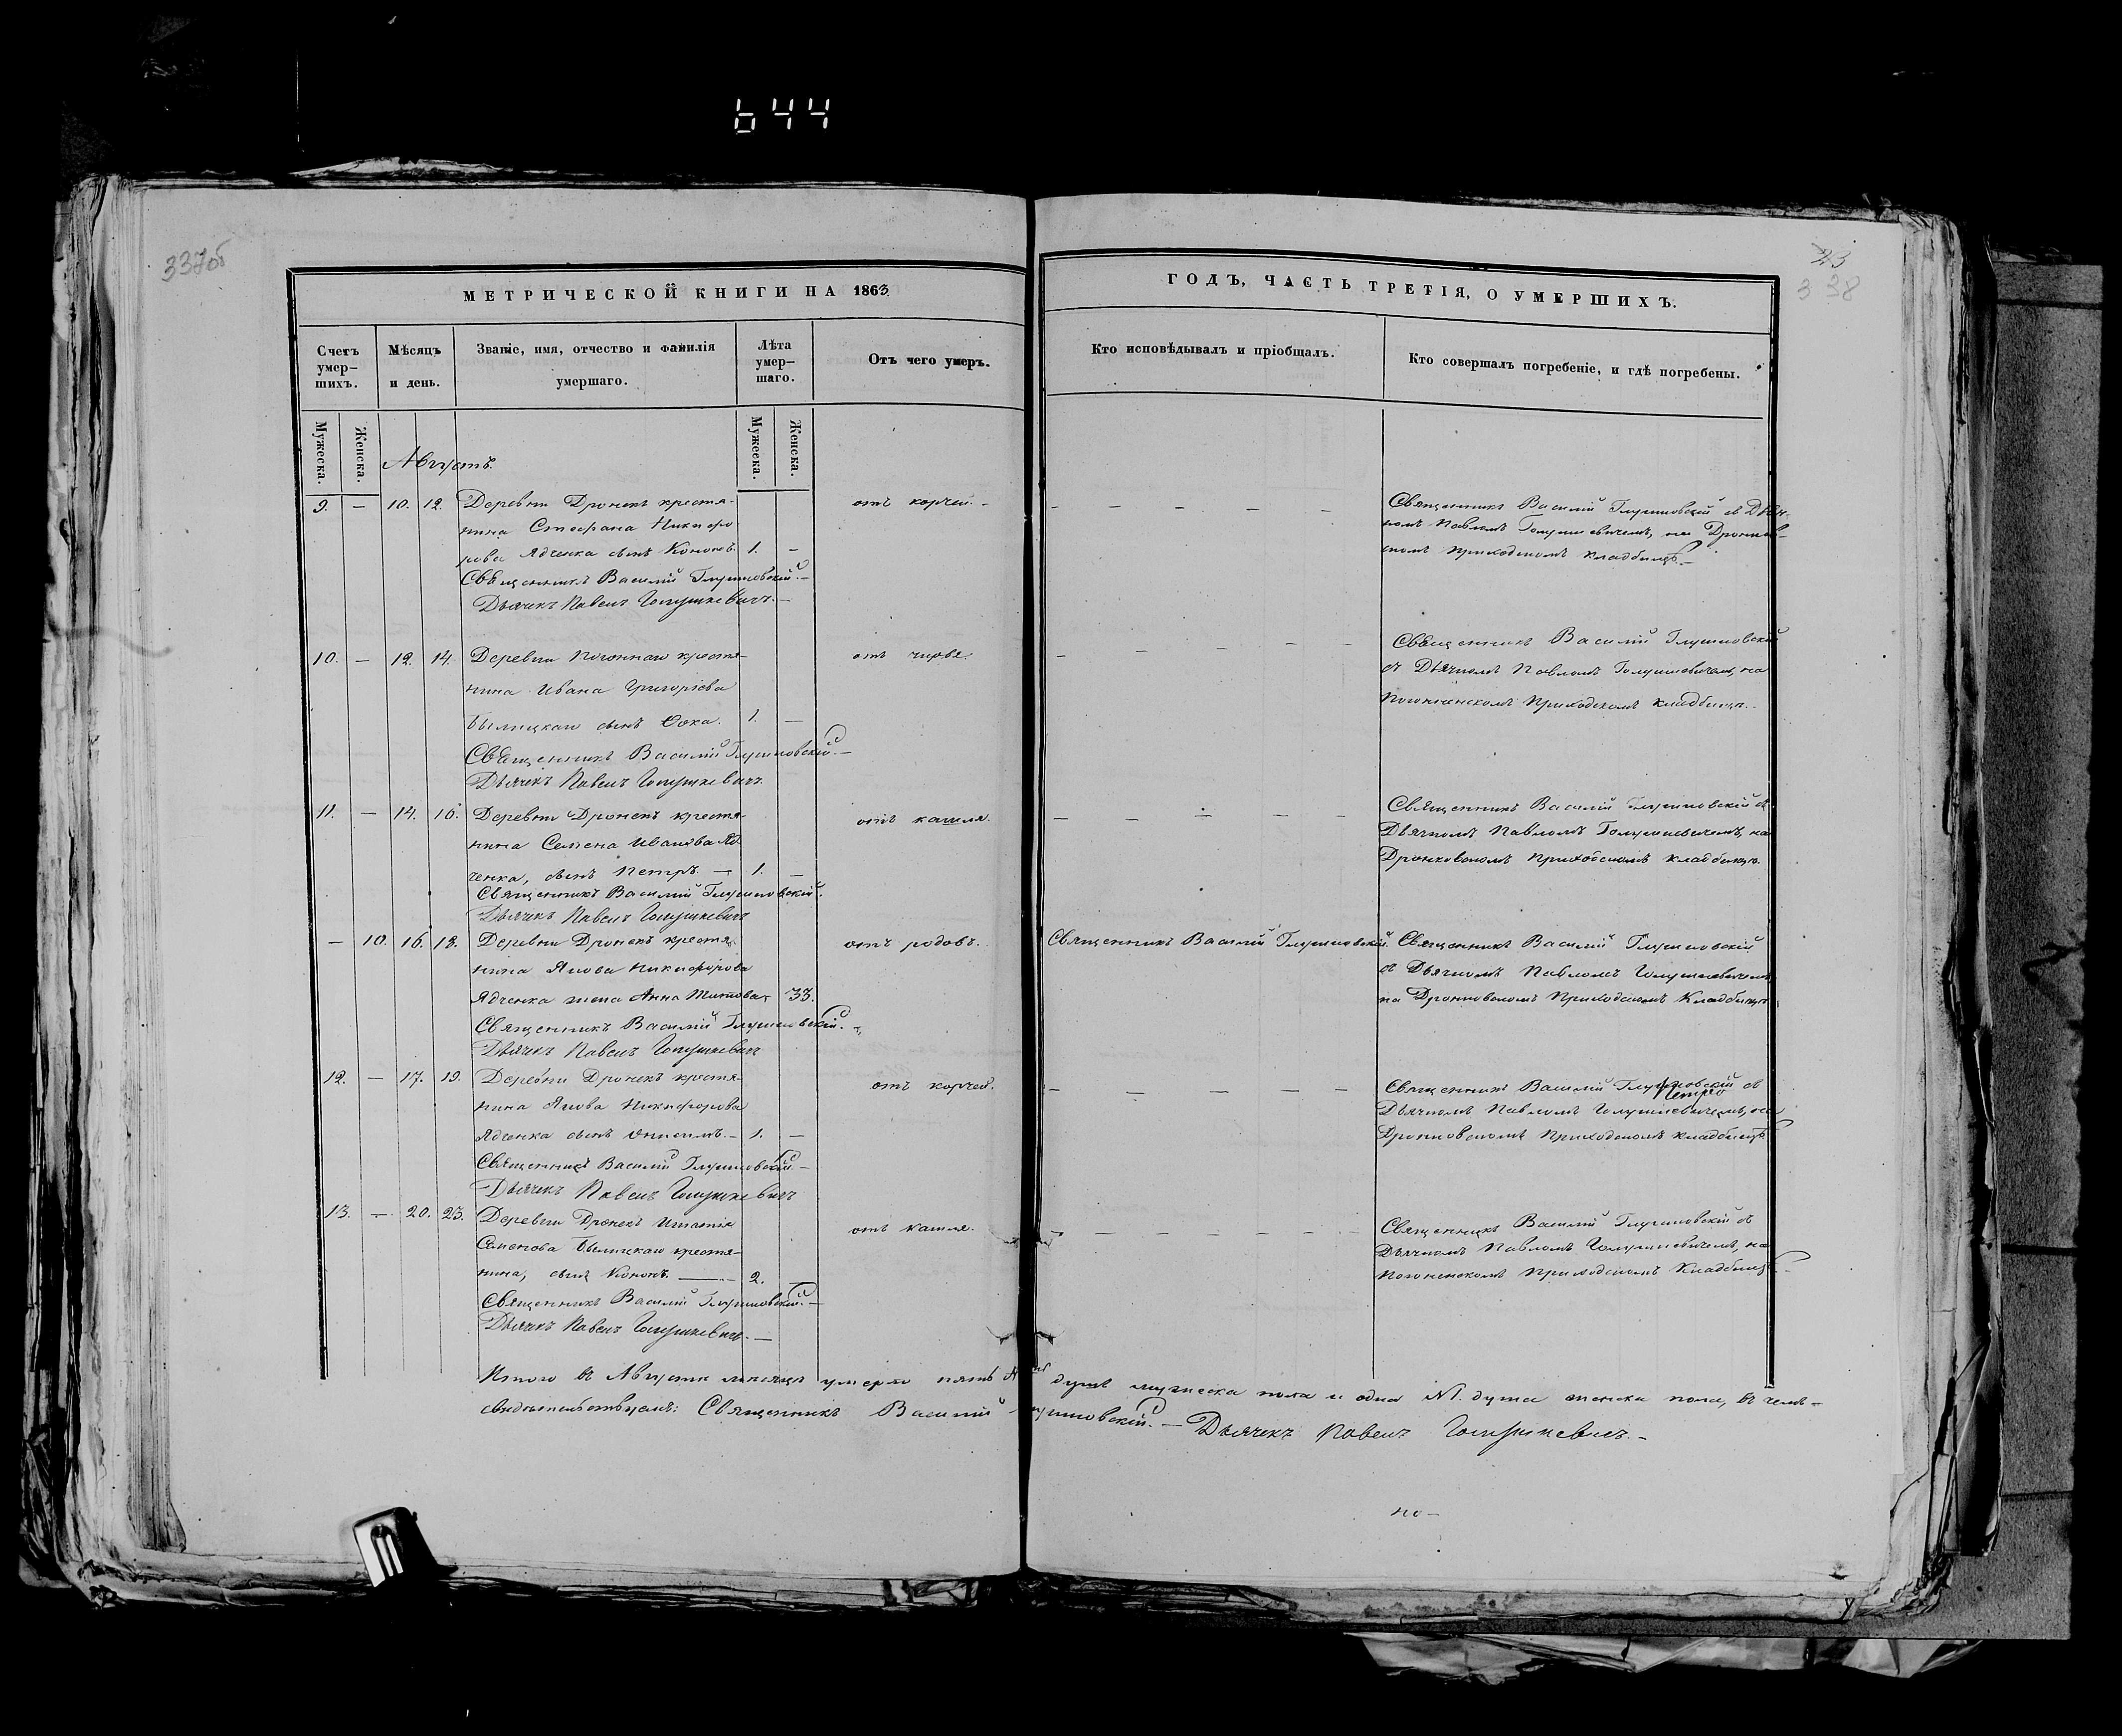 644
337об
23
338
МЕТРИЧЕСКОЙ КНИГИ НА 1863
ГОДЪ, ЧАСТЬ ТРЕТІЯ, О УМЕРШИХЪ.
Счетъ умер-
шихъ.
Мѣсяцъ
и день.
Званіе, имя, отчество и фамилія
умершаго.
Лѣта
умер-
шаго.
Отъ чего умеръ.
Кто исповѣдывалъ и пріобщалъ.
Кто совершалъ погребеніе, и гдѣ погребены.
Мужеска.
Женска.
Мужеска.
Женска.
Августъ.
9. — 10. 12. Деревни Дронекъ крестя-
нина Стефана Никифо
рова Ядченка сынъ Кононъ. 1. —
отъ корчей. —
Священникъ Василій Глушновскій.—
Дьячекъ Павелъ Голушкевичъ.—
Священникъ Василій Глушновскій съ Дьяч-
комъ Павломъ Голушкевичемъ, на Дронков-
скомъ приходскомъ кладбищѣ.—
10. — 12. 14. Деревни Погоннаго крестя-
нина Ивана Григоріева
Былицкаго сынъ Ѳока. 1. —
Священникъ Василій Глушновскій.—
Дьячекъ Павелъ Голушкевичъ.
Священникъ Василій Глушновскій
съ Дьячкомъ Павломъ Голушкевичемъ, на
Погоненскомъ Приходскомъ кладбищѣ.
11. — 14. 16. Деревни Дронекъ крестя-
нина Семена Иванова Яд
ченка, сынъ Петръ. — 1. —
отъ кашля.
Священникъ Василій Глушновскій.
Дьячекъ Павелъ Голушкевичъ
Священникъ Василій Глушновскій съ
Дьячкомъ Павломъ Голушкевичемъ, на
Дронковскомъ приходскомъ кладбищѣ.
— 10. 16. 18. Деревни Дронекъ крестя-
нина Якова Никифорова
Ядченка жена Анна Титова 33.
отъ родовъ.
Священникъ Василій Глушновскій.
Священникъ Василій Глушновскій.—
Дьячекъ Павелъ Голушкевичъ
Священникъ Василій Глушновскій
съ Дьячкомъ Павломъ Голушкевичемъ,
на Дронковскомъ Приходскомъ Кладбищѣ
12. — 17. 19. Деревни Дронекъ крестя-
нина Якова Никифорова
Ядченка сынъ Онисимъ.— 1. —
отъ корчей.
Священникъ Василій Глушновскій.—
Дьячекъ Павелъ Голушкевичъ
Священникъ Василій Глушновскій съ
Дьячкомъ Павломъ Голушкевичемъ, на
Дронковскомъ приходскомъ кладбищѣ
13. — 20. 23. Деревни Дронекъ Игнатія
Семенова Былицкаго крестя-
нина, сынъ Кононъ. — 2. —
отъ кашля.
Священникъ Василій Глушновскій.—
Дьячекъ Павелъ Голушкевичъ.—
Священникъ Василій Глушновскій съ
Дьячкомъ Павломъ Голушкевичемъ, на
Погоненскомъ приходскомъ Кладбищѣ
Итого въ Августѣ мѣсяцѣ умерло пять душъ мужеска пола и одна душа женска пола, въ чемъ—
свидѣтельствуемъ: Священникъ Василій Глушновскій.— Дьячекъ Павелъ Голушкевичъ.—